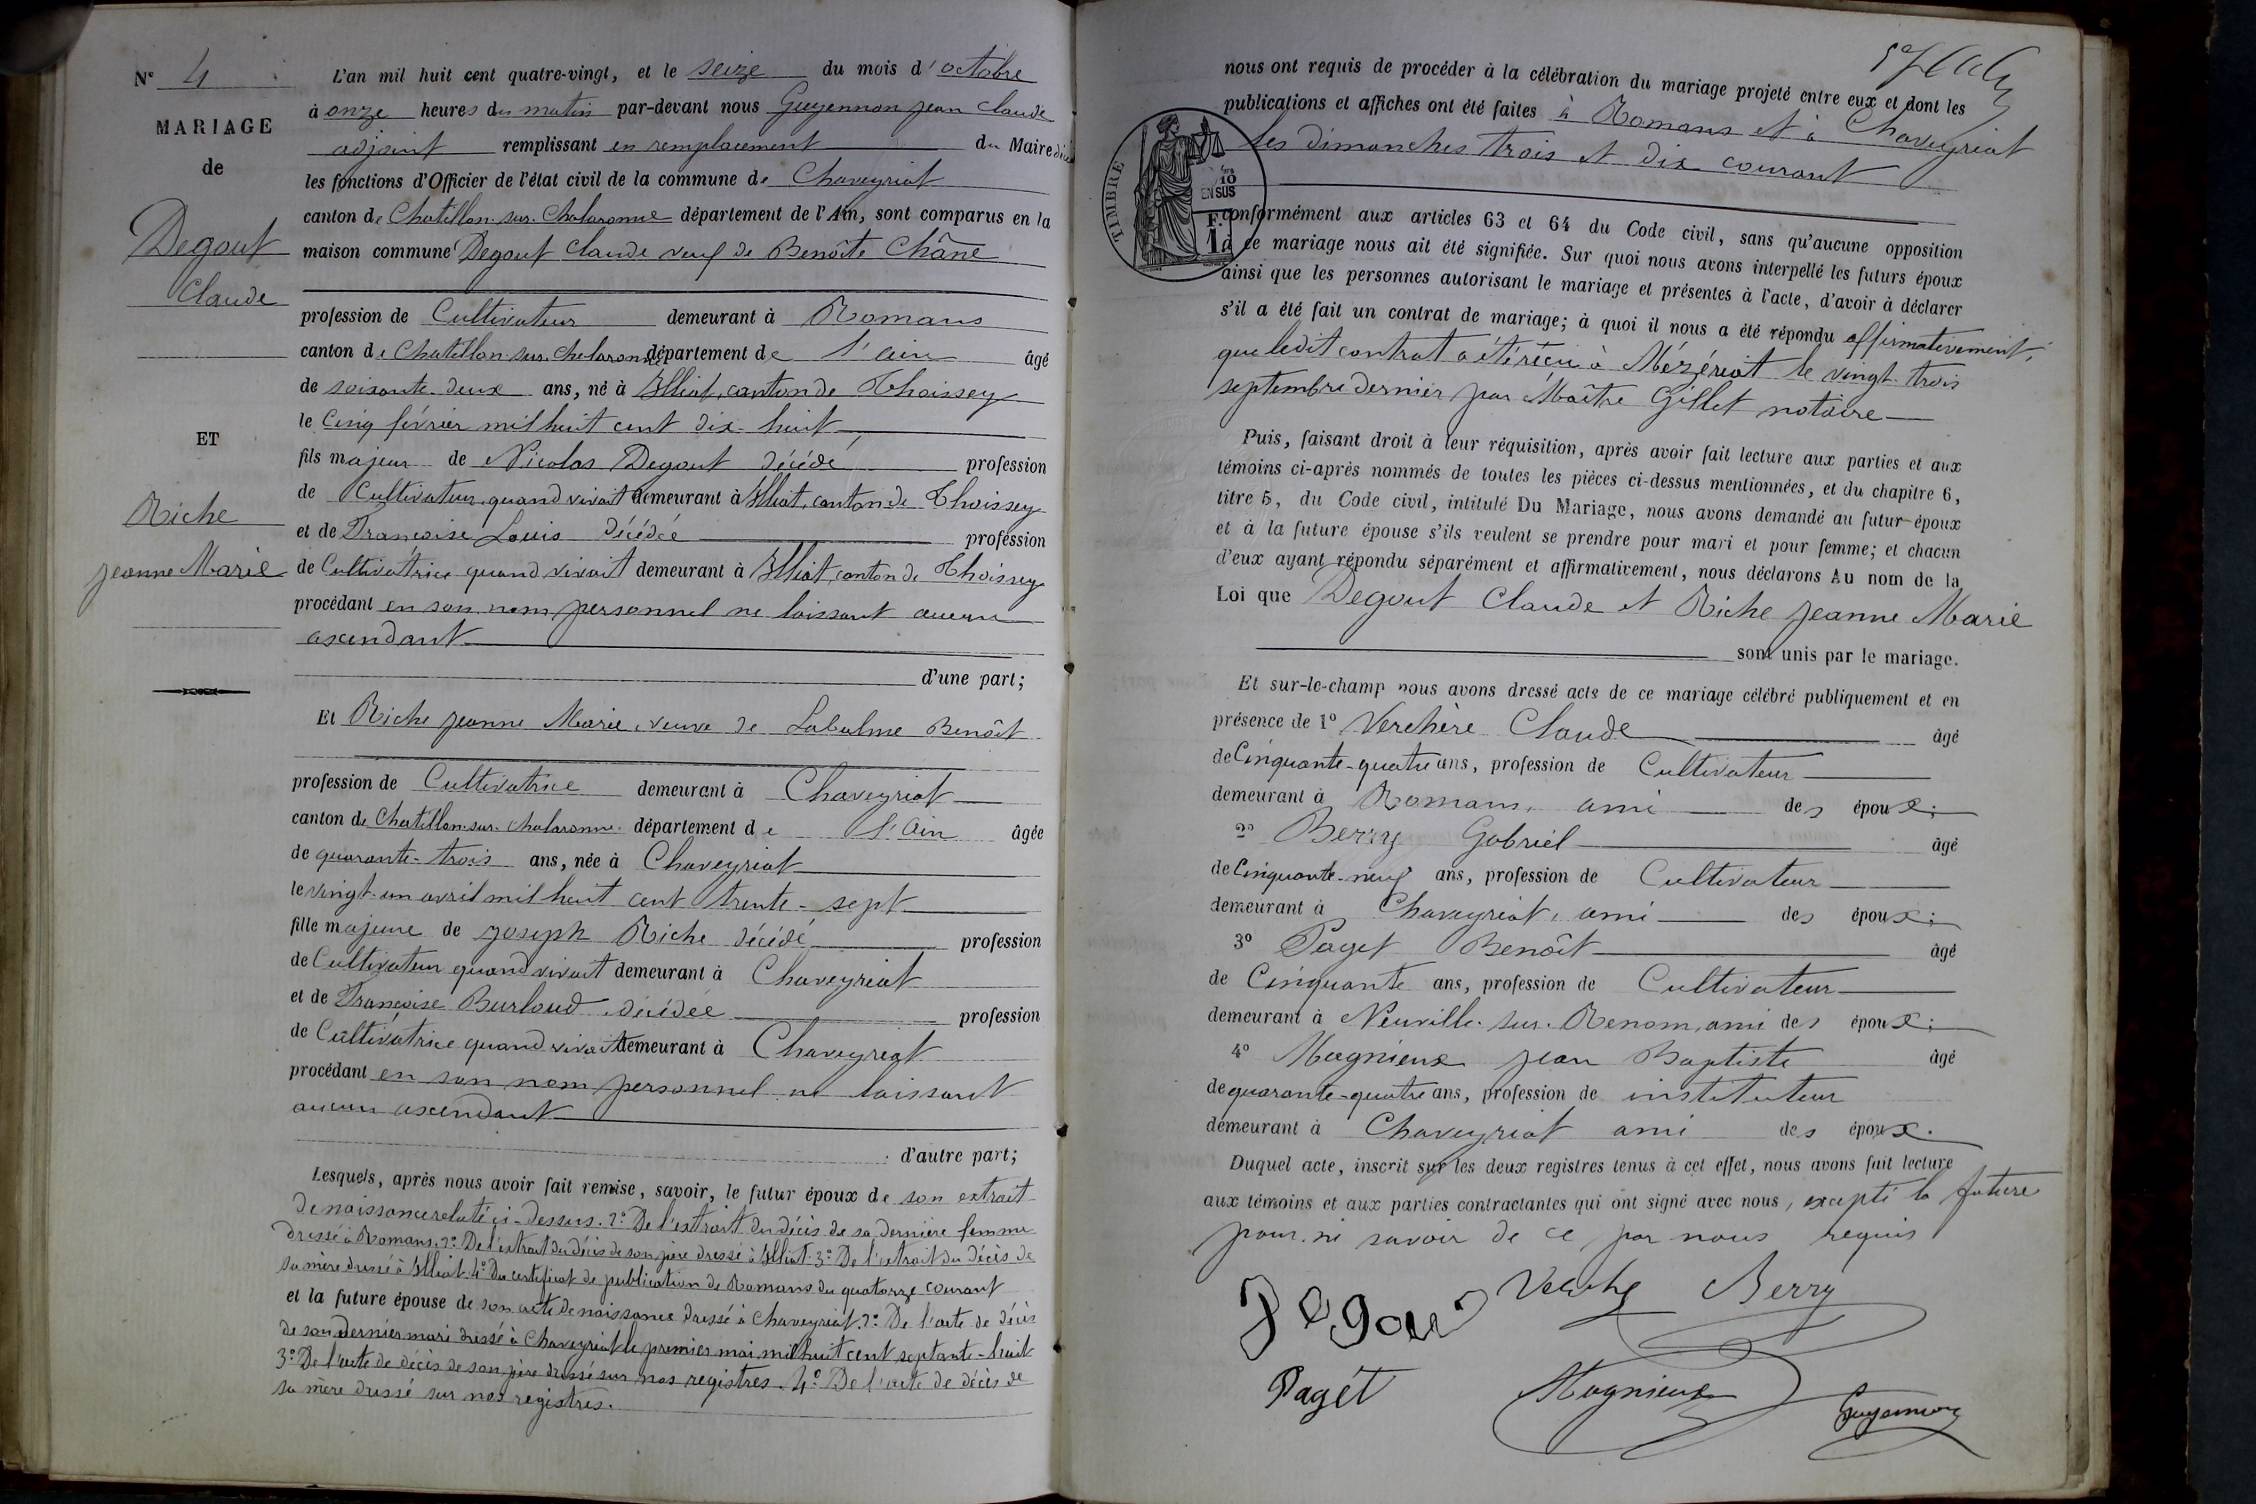 N° 4
MARIAGE
de
Degout
Claude
ET
Riche
Jeanne Marie
L'an mil huit cent quatre-vingt, et le seize du mois d'octobre
à onze heures du matin par-devant nous Guyennon Jean Claude
adjoint remplissant en remplacement du Maire
les fonctions d'Officier de l'état civil de la commune de Chaveyriat
canton de Chatillon-sur-Chalaronne département de l'Ain, sont comparus en la
maison commune Degout Claude veuf de Benoîte Châne
profession de Cultivateur demeurant à Romans
canton de Chatillon-sur-Chalaronne département de l'ain âgé
de soixante-deux ans, né à Illiat, canton de Thoissey
le Cinq février mil huit cent dix-huit
fils majeur de Nicolas Degout décédé profession
de Cultivateur quand vivait demeurant à Illiat, canton de Thoissey
et de Françoise Louis décédée profession
de Cultivatrice quand vivait demeurant à Illiat canton de Thoissey
procédant en son nom personnel ne laissant aucun
ascendant
d'une part;
Et Riche Jeanne Marie, veuve de Labalme Benoît
profession de Cultivatrice demeurant à Chaveyriat
canton de Chatillon-sur-Chalaronne département de l'Ain âgée
de quarante-trois ans, née à Chaveyriat
le vingt-un avril mil huit cent trente-sept
fille majeure de Joseph Riche décédé profession
de Cultivateur quand vivait demeurant à Chaveyriat
et de Françoise Burloud décédée profession
de Cultivatrice quand vivait demeurant à Chaveyriat
procédant en son nom personnel ne laissant
aucun ascendant
d'autre part;
Lesquels, après nous avoir fait remise, savoir, le futur époux de son extrait
de naissance relaté ci-dessus. 2° De l'extrait du décès de sa dernière femme
dressé à Romans. 2° De l'extrait du décès de son père dressé à Illiat. 3° De l'extrait du décès de
sa mère dressé à Illiat. 4° Du certificat de publication de Romans du quatorze courant
et la future épouse de son acte de naissance dressé à Chaveyriat. 2° De l'acte de décès
de son dernier mari dressé à Chaveyriat le premier mai mil huit cent septante-huit
3° De l'acte de décès de son père dressé sur nos registres. 4° De l'acte de décès de
sa mère dressé sur nos registres.
nous ont requis de procéder à la célébration du mariage projeté entre eux et dont les
publications et affiches ont été faites à Romans et à Chaveyriat
les dimanches trois et dix courant
TIMBRE
10
EN SUS
F.
1
conformément aux articles 63 et 64 du Code civil, sans qu'aucune opposition
à ce mariage nous ait été signifiée. Sur quoi nous avons interpellé les futurs époux
ainsi que les personnes autorisant le mariage et présentes à l'acte, d'avoir à déclarer
s'il a été fait un contrat de mariage; à quoi il nous a été répondu affirmativement,
que ledit contrat a été reçu à Mézériat le vingt-trois
septembre dernier par Maître Gillet notaire
Puis, faisant droit à leur réquisition, après avoir fait lecture aux parties et aux
témoins ci-après nommés de toutes les pièces ci-dessus mentionnées, et du chapitre 6,
titre 5, du Code civil, intitulé Du Mariage, nous avons demandé au futur époux
et à la future épouse s'ils veulent se prendre pour mari et pour femme; et chacun
d'eux ayant répondu séparément et affirmativement, nous déclarons Au nom de la
Loi que Degout Claude et Riche Jeanne Marie
sont unis par le mariage.
Et sur-le-champ nous avons dressé acte de ce mariage célébré publiquement et en
présence de 1° Verchère Claude âgé
de Cinquante-quatre ans, profession de Cultivateur
demeurant à Romans, ami des époux;
2° Berry Gabriel âgé
de Cinquante-neuf ans, profession de Cultivateur
demeurant à Chaveyriat, ami des époux;
3° Paget Benoît âgé
de Cinquante ans, profession de Cultivateur
demeurant à Neuville-sur-Renom, ami des époux;
4° Magnieux Jean Baptiste âgé
de quarante-quatre ans, profession de instituteur
demeurant à Chaveyriat ami des époux.
Duquel acte, inscrit sur les deux registres tenus à cet effet, nous avons fait lecture
aux témoins et aux parties contractantes qui ont signé avec nous, excepté la future
pour ne savoir de ce par nous requis
Degout Berry
Pagét Magnieux Guyennon